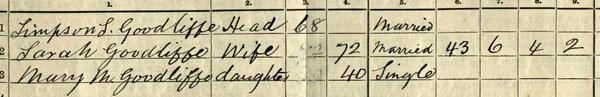 1. 2. 3. 4. 5. 6. 7. 8. 9.
1 Simpson S. Goodliffe Head 68 Married
2 Sarah Goodliffe Wife 72 Married 43 6 4 2
3 Mary M. Goodliffe daughter 40 Single